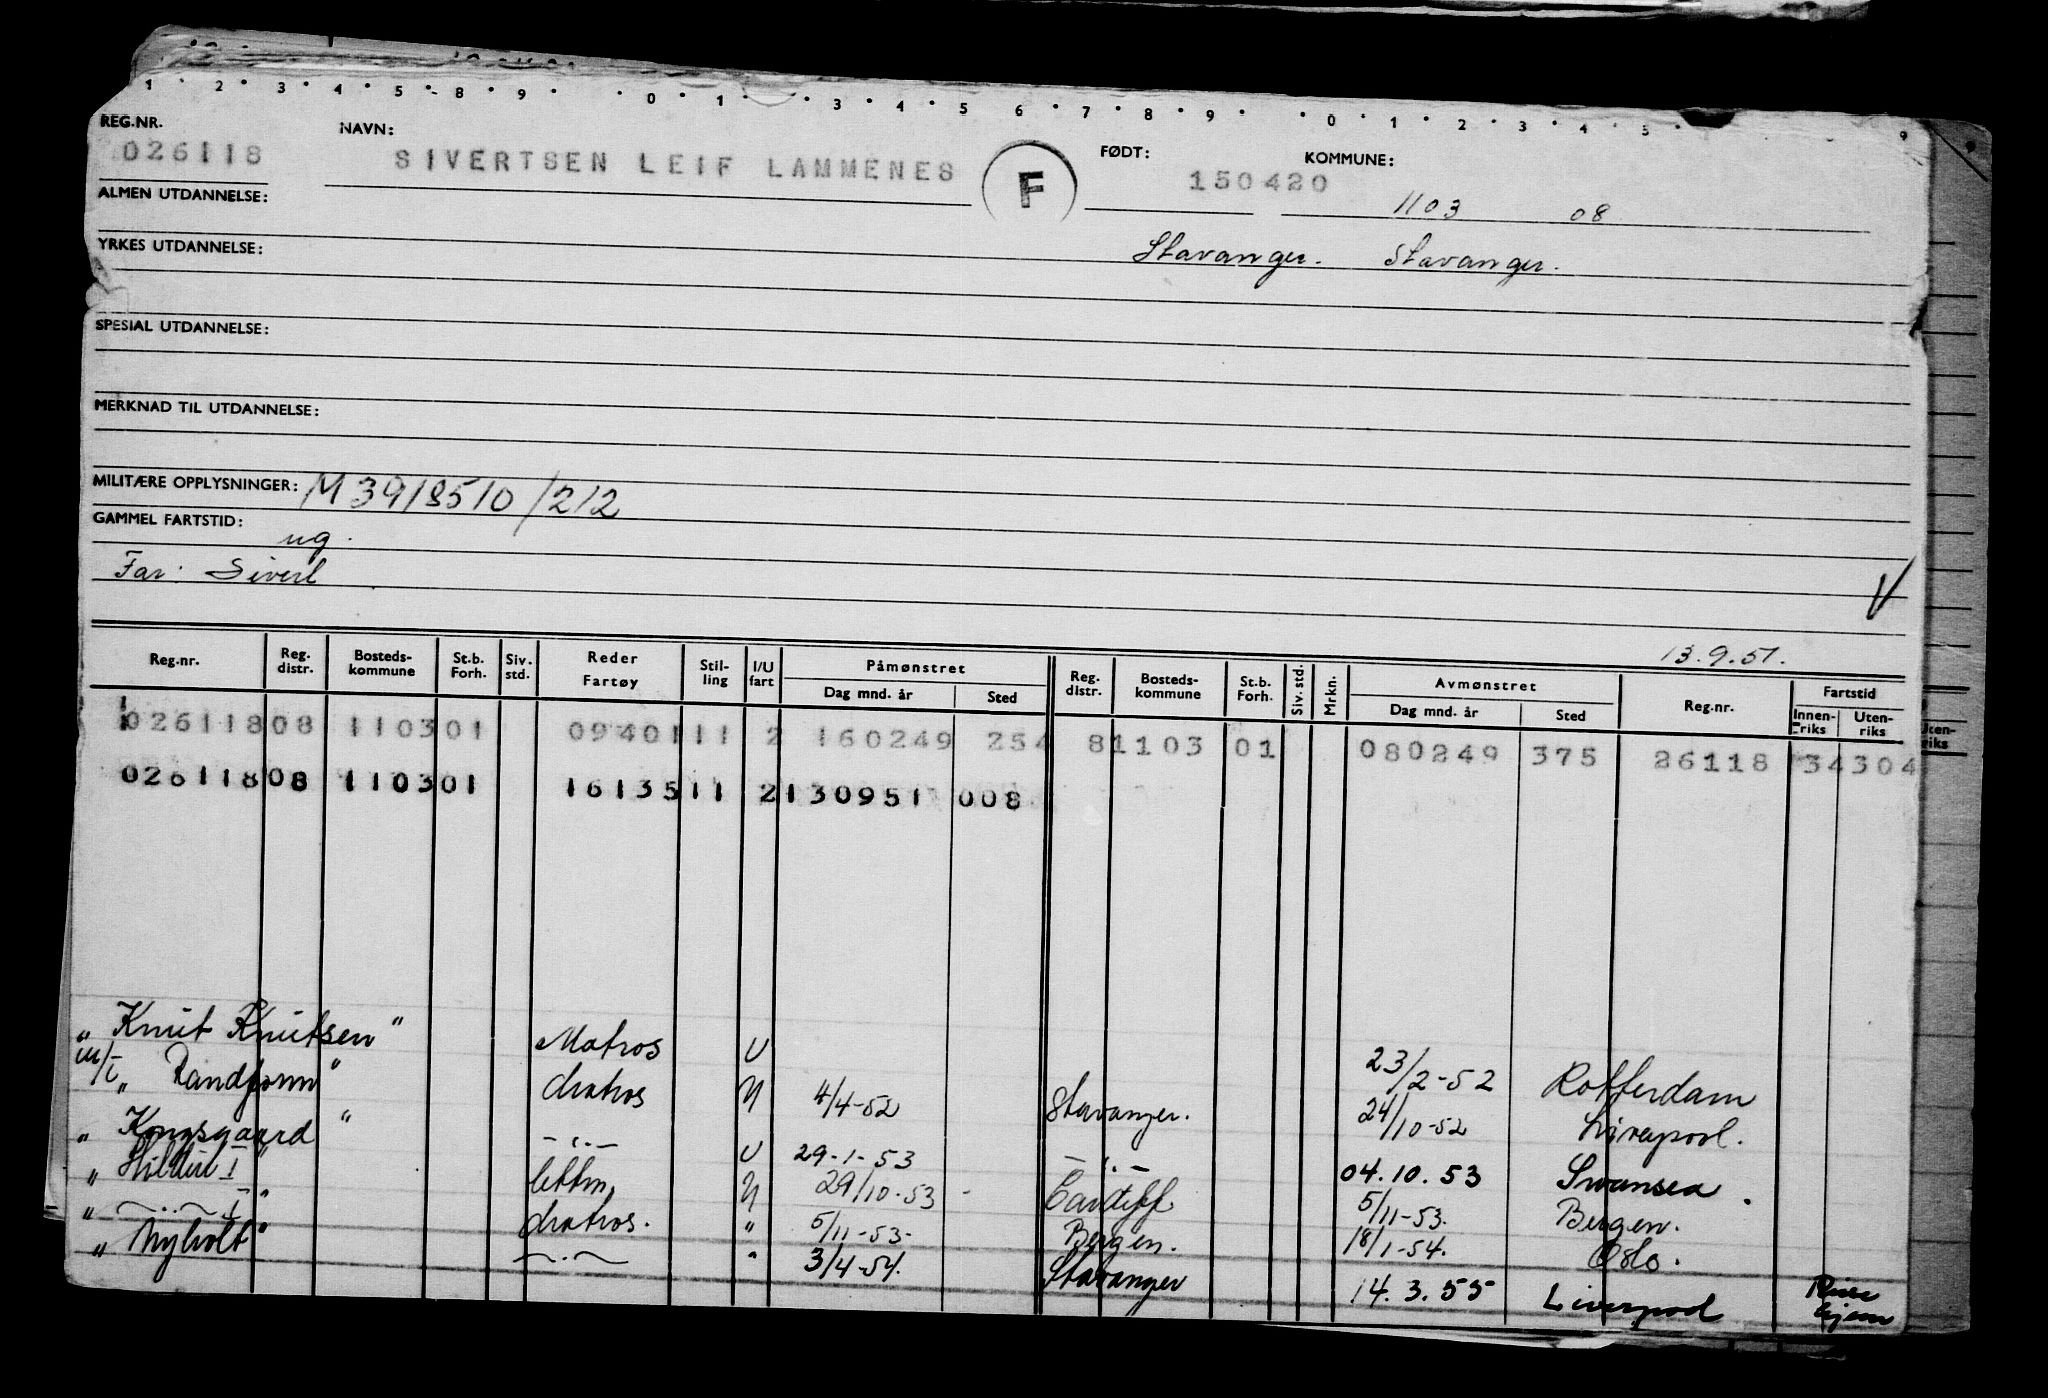 1 2 3 4 5 8 9 0 1 3 4 5 6 7 8 9 0 1 2 3 4 5 9
REG.NR. NAVN: FØDT: KOMMUNE:
026118 SIVERTSEN LEIF LAMMENES F 150420 1103 08
ALMEN UTDANNELSE:
YRKES UTDANNELSE: Stavanger. Stavanger.
SPESIAL UTDANNELSE:
MERKNAD TIL UTDANNELSE:
MILITÆRE OPPLYSNINGER: M 3918510/212
GAMMEL FARTSTID: ug.
Far: Sivert
V
13.9.51.
Reg.nr. Reg. distr. Bosteds-kommune St.b. Forh. Siv. std. Reder Fartøy Stil-ling I/U fart Påmønstret Dag mnd. år Sted Reg. distr. Bosteds-kommune St.b. Forh. Siv. std. Mrkn. Avmønstret Dag mnd. år Sted Reg.nr. Fartstid Innen-riks Uten-riks
02611808 110301 0940111 2 160249 254 81103 01 080249 375 26118 34304
02611808 110301 1613511 2130951 008
„ Knut Knutsen " Matros U 23/2-52 Rotterdam
m/t „ Randfonn " Matros U 4/4-52 Stavanger. 24/10-52 Liverpool.
„ Kongsgaard " -„- U 29-1-53 -„- 04.10.53 Swansea.
„ Hildur I " lettm. U 29/10-53 - Cardiff 5/11-53. Bergen.
„ -„- I " Matros. " 5/11-53- Bergen. 18/1-54. Oslo.
„ Nyholt " -„- " 3/4-54. Stavanger 14.3.55 Liverpool Reise hjem